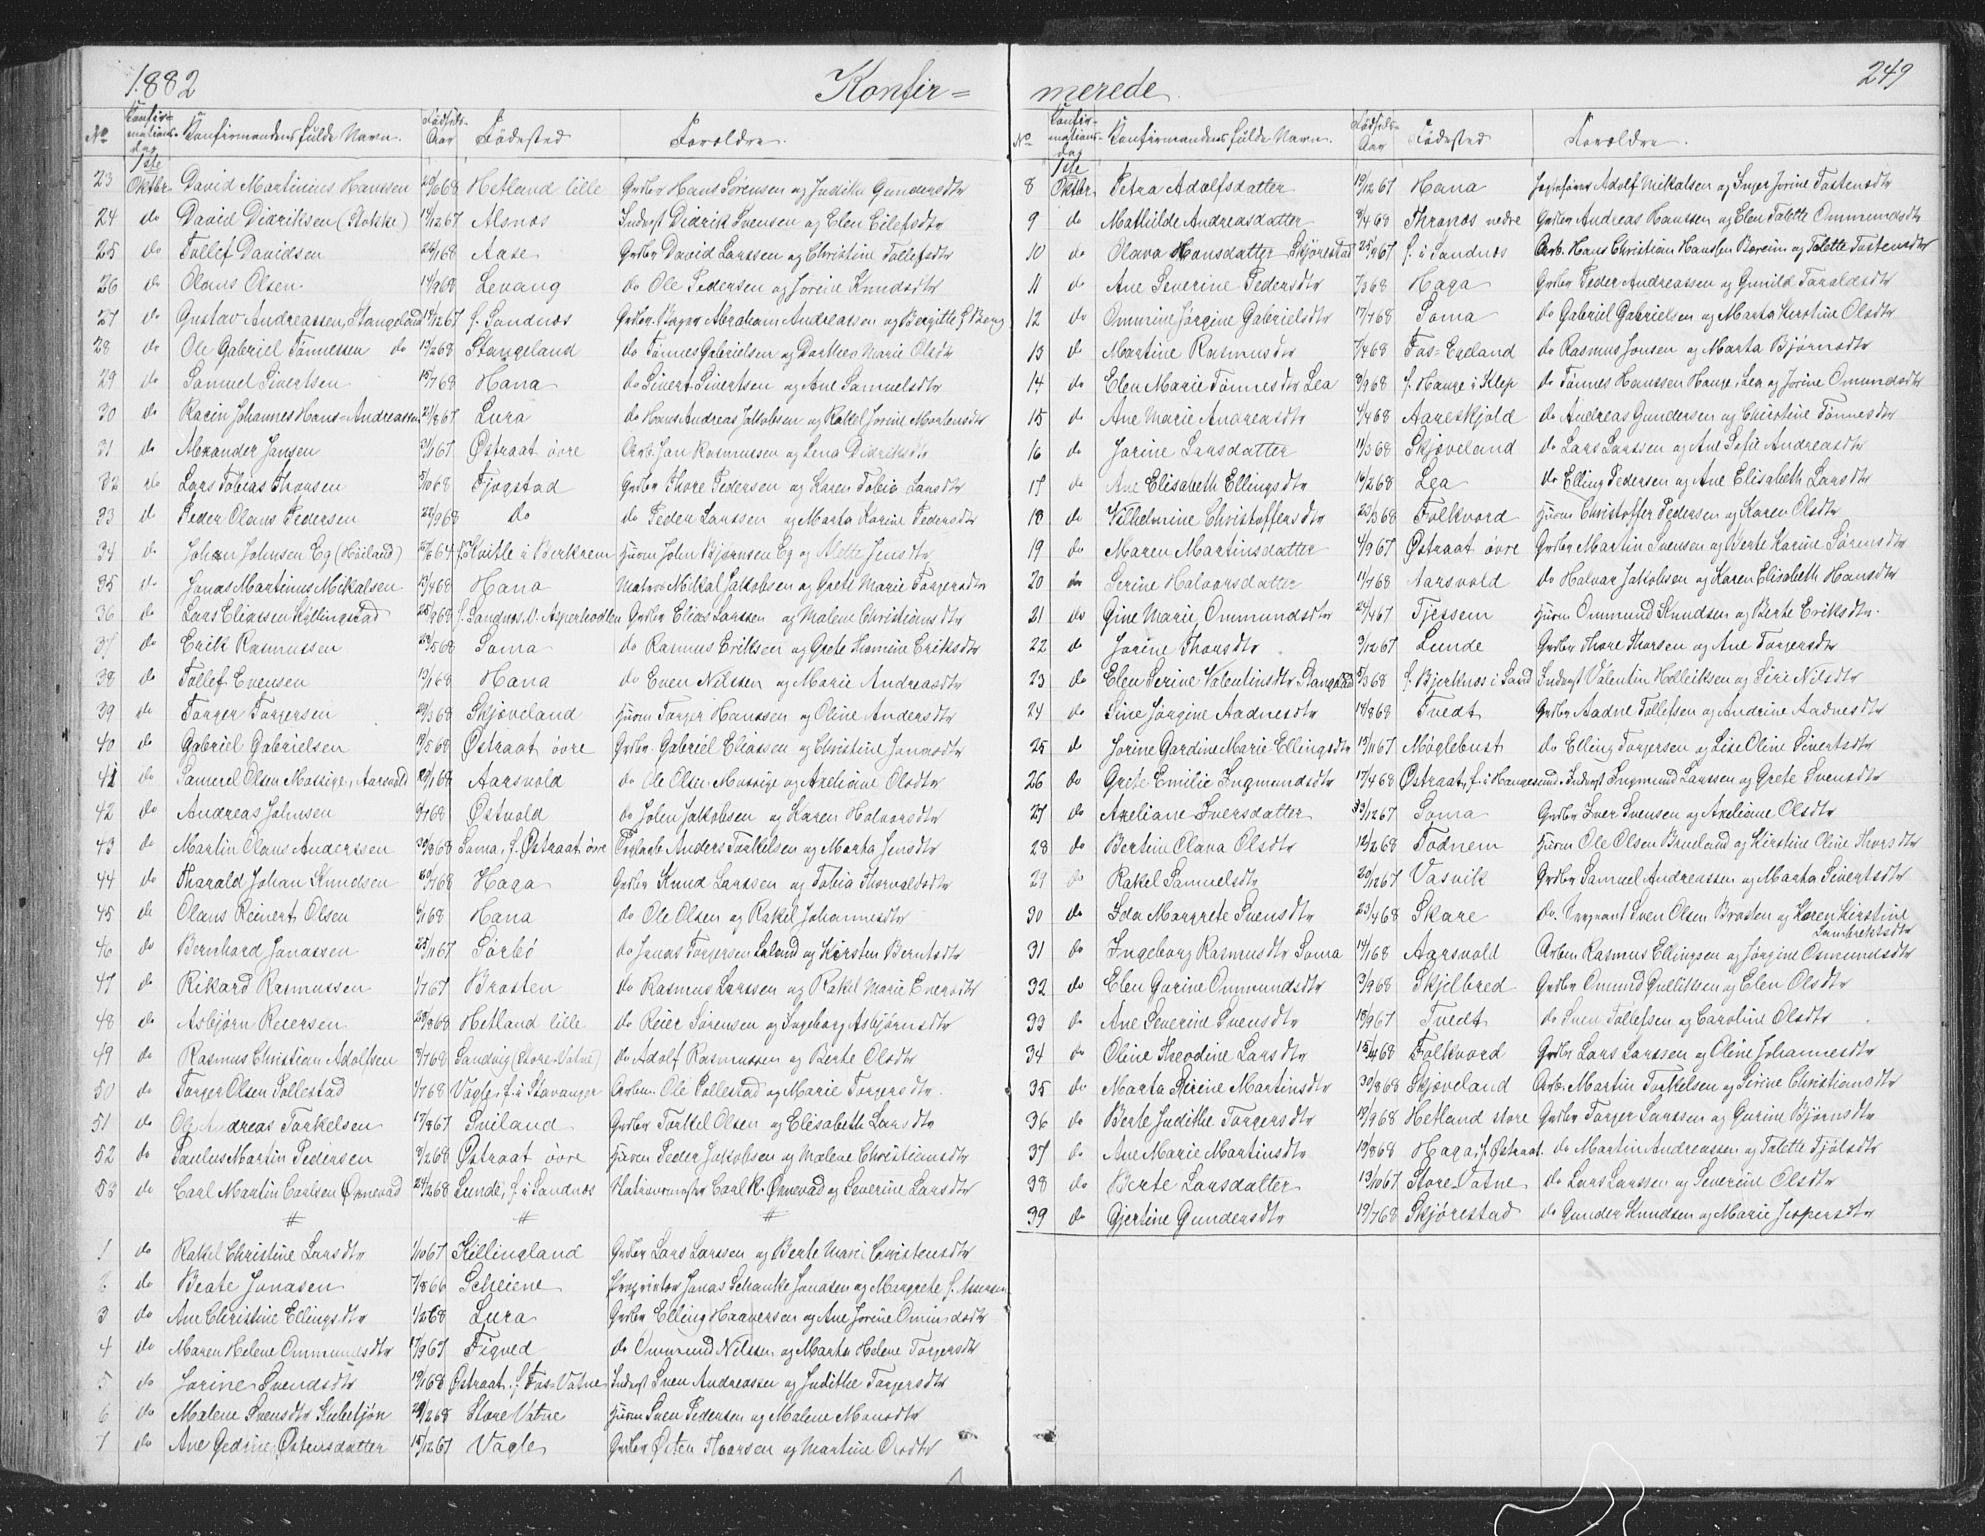 1882 Konfir=
No Konfirmationsdag Konfirmandens fulde Navn. Fødsels-Aar Fødested Forældre.
23 1ste Oktbr. David Martinius Hanssen 29/6 68 Hetland lille Grdbr Hans Sørensen og Judithe Gundersdtr
24 do David Didriksen (Stokke) 14/12 67 Alsnæs Inderst Didrik Svensen og Elen Eilefsdtr
25 do Tollef Davidsen 24/1 68 Aase Grdbr David Larssen og Christine Tollefsdtr
26 do Olaus Olsen 14/9 68 Levang do Ole Pedersen og Jorine Knudsdtr
27 do Gustav Andreassen, Stangeland 14/12 67 f. Sandnæs Grdbr. Bager Abraham Andreassen og Bergitte J. Berg
28 do Ole Gabriel Tønnessen do 13/2 68 Stangeland do Tønnes Gabrielsen og Dorthea Marie Olsdtr
29 do Samuel Sivertsen 15/7 68 Hana do Sivert Sivertsen og Ane Samuelsdtr
30 do Racin Johannes Hans-Andreassen 21/8 67 Lura do Hans Andreas Jakobsen og Rakel Jorine Mortensdtr
31 do Alexander Jansen 31/1 67 Østraat øvre Arb. Jan Rasmussen og Lena Didriksdtr
32 do Lars Tobias Thorsen 5/10 68 Fjogstad Grdbr Thore Pedersen og Karen Tobia Larsdtr
33 do Peder Olaus Pedersen 22/9 68 do do Peder Larssen og Marta Karine Pedersdtr
34 do Johan Johnsen Eg (Høiland) 25/6 64 f. Kvitle i Berkrem Husm John Bjørnsen Eg og Alette Jensdtr
35 do Jonas Martinus Mikalsen 23/4 68 Hana Matros Mikal Jakobsen og Grete Marie Torgersdtr
36 do Lars Eliassen Kyllingstad 25/9 68 f. Sandnæs, O. Asperholten Grdbr Elias Larssen og Malene Christiansdtr
37 do Erik Rasmussen 29/5 68 Soma do Rasmus Eriksen og Grete Tomine Eriksdtr
38 do Tollef Evensen 19/1 68 Hana do Even Nilssen og Marie Andreasdtr
39 do Torger Torgersen 29/3 68 Skjæveland Husm Torger Hanssen og Oline Andersdtr
40 do Gabriel Gabrielsen 19/5 68 Østraat øvre Grdbr. Gabriel Eliassen og Christine Jonasdtr
41 do Samuel Olsen Mossige, Aarsvold 20/1 68 Aarsvold do Ole Olsen Mossige og Axeliane Olsdtr
42 do Andreas Johnsen 9/7 68 Østvold do John Jakobsen og Karen Halvorsdtr
43 do Martin Olaus Anderssen 30/8 68 Soma, f. Østraat øvre Teglarb Anders Torkelsen og Marta Jensdtr
44 do Tharald Johan Knudsen 20/7 68 Haga Grdbr Knud Larssen og Tobia Thorvaldsdtr
45 do Olaus Reinert Olsen 4/1 68 Hana do Ole Olsen og Rakel Johannesdtr
46 do Bernhard Jonassen 25/11 67 Sørbø do Jonas Torgersen Leland og Kirsten Berntsdtr
47 do Rikard Rasmussen 1/7 67 Brasten do Rasmus Larssen og Rakel Marie Eversdtr
48 do Asbjørn Reiersen 28/8 68 Hetland lille do Reier Sørensen og Ingeborg Asbjørnsdtr
49 do Rasmus Christian Adolfsen 8/7 68 Sandvig (Store-Vatne) do Adolf Rasmussen og Berte Olsdtr
50 do Torger Olsen Pollestad 1/7 68 Vagle, f. i Stavanger Arbm. Ole Pollestad og Marie Torgersdtr.
51 do Ole Andreas Torkelsen 17/8 67 Sviland Grdbr Torkel Olsen og Elisabeth Larsdtr
52 do Paulus Martin Pedersen 8/2 68 Østraat øvre Husm Peder Jakobsen og Malene Christiansdtr
53 do Carl Martin Carlsen Ørnevad 24/2 68 Lunde, f. i Sandnæs Stationsmester Carl K. Ørnevad og Severine Larsdtr
# # #
1 do Rakel Christine Larsdtr 1/10 67 Killingland Grdbr Lars Larssen og Berte Marie Christensdtr
2 do Beate Jonasen 7/8 66 Scheiene Proprietær Jonas Schanke Jonasen og Margrete J. Assersen
3 do Ane Christine Ellingsdtr 1/2 68 Lura Grdbr Elling Haaversen og Ane Jorine Omundsdtr
4 do Maren Helene Ommundsdtr 17/9 67 Figved do Ommund Nilssen og Marta Helene Torgersdtr
5 do Jorine Svendsdtr 19/1 68 Østraat, f. Fos-Vatne Inderst Sven Andreassen og Judithe Torgersdtr
6 do Malene Svensdtr Kubetjøn 28/2 68 Store Vatne Husm Sven Pedersen og Malene Monsdtr
7 do Ane Gedine Østensdatter 15/12 67 Vagle Grdbr Østen Thorsen og Martine Olsdtr
merede. 249
No Konfirmationsdag Konfirmandens fulde Navn. Fødsels-Aar Fødested Forældre.
8 1ste Oktbr. Petra Adolfsdatter 19/12 67 Hana Jagtefører Adolf Mikalsen og Inger Jorine Tostensdtr
9 do Mathilde Andreasdatter 8/4 68 Thranæs nedre Grdbr Andreas Hanssen og Elen Talette Ommundsdtr
10 do Olava Hansdatter Skjørestad 25/9 67 f. i Sandnæs Arb. Hans Christian Hanssen Bæreim og Talette Tostensdtr
11 do Ane Severine Pedersdtr 7/3 68 Haga Grdbr Peder Andreassen og Gunild Taraldsdtr
12 do Ommine Jørgine Gabrielsdtr 17/7 68 Soma do Gabriel Gabrielsen og Marta Kerstine Olsdtr
13 do Martine Rasmusdtr 7/4 68 Fos-Egeland do Rasmus Jonsen og Marta Bjørnsdtr
14 do Elen Marie Tønnesdtr Lea 8/9 68 f. Hauge i Klep do Tønnes Hanssen Hauge, Lea og Jorine Omundsdtr
15 do Ane Marie Andreasdtr 4/4 68 Aareskjold do Andreas Gundersen og Christine Tønnesdtr
16 do Jorine Larsdatter 11/3 68 Skjæveland do Lars Larssen og Ane Sofie Andreasdtr
17 do Ane Elisabeth Ellingsdtr 16/2 68 Lea do Elling Pedersen og Ane Elisabeth Larsdtr
18 do Vilhelmine Christoffersdtr 23/3 68 Folkvord Husm Christoffer Pedersen og Karen Olsdtr
19 do Maren Martinsdatter 4/9 67 Østraat øvre Grdbr Martin Svensen og Berte Karine Sørensdtr
20 do Serine Halvorsdatter 11/7 68 Aarsvold do Halvar Jakobsen og Karen Elisabeth Hansdtr
21 do Gine Marie Ommundsdtr 24/4 67 Tjessem Husm Ommund Knudsen og Berte Eriksdtr.
22 do Jorine Thorsdtr 3/12 67 Lunde Grdbr Thore Thorsen og Ane Torgersdtr
23 do Elen Serine Valentinsdtr Stangeland 5/3 68 f. Bjerknæs i Sand Inderst Valentin Helleiksen og Siri Nilsdtr
24 do Sine Jørgine Aadnesdtr 18/8 68 Tvedt Grdbr Aadne Tollefsen og Andrine Aadnesdtr
25 do Jorine Gardine Marie Ellingsdtr 19/11 67 Møglebust do Elling Torgersen og Lise Oline Sivertsdtr
26 do Grete Emilie Ingmundsdtr 17/4 68 Østraat, f. i Haugesund. Inderst Ingmund Larssen og Grete Svensdtr
27 do Axeliane Iversdatter 23/12 67 Soma Grdbr Iver Svensen og Axeliane Olsdtr
28 do Bertine Olava Olsdtr 12/2 68 Todnem Husm Ole Olsen Brueland og Kirstine Oline Thorsdtr
29 do Rakel Samuelsdtr 20/12 67 Vasvik Grdbr Samuel Andreassen og Marta Sivertsdtr
30 do Ida Margrete Svensdtr 23/4 68 Skare do. Sergeant Sven Olsen Brasten og Karen Kirstine
Lambrektsdtr
31 do Ingeborg Rasmusdtr Soma 14/1 68 Aarsvold Arbm Rasmus Ellingsen og Jørgine Osmundsdtr
32 do Elen Gurine Ommundsdtr 3/9 68 Skjelbred Grdbr Ommund Gullitksen og Elen Olsdtr
33 do Ane Severine Svensdtr 18/9 67 Tvedt do Sven Tollefsen og Caroline Olsdtr
34 do Oline Theodine Larsdtr 15/4 68 Folkvord Grdbr Lars Larssen og Oline Johannesdtr
35 do Marta Serine Martinsdtr 30/8 68 Skjæveland Arb. Martin Torkelsen og Sirine Christiansdtr
36 do Berte Judithe Torgersdtr 19/9 68 Hetland store Grdbr Torger Larssen og Gurine Bjørnsdtr
37 do Ane Marie Martinsdtr 19/8 68 Haga, f. Østraat. do Martin Andreassen og Talette Fjølsdtr
38 do Berte Larsdatter 13/10 67 Store-Vatne do Lars Larssen og Severine Olsdtr
39 do Gjertine Gundersdtr 19/7 68 Skjørestad do Gunder Knudsen og Marie Jespersdtr